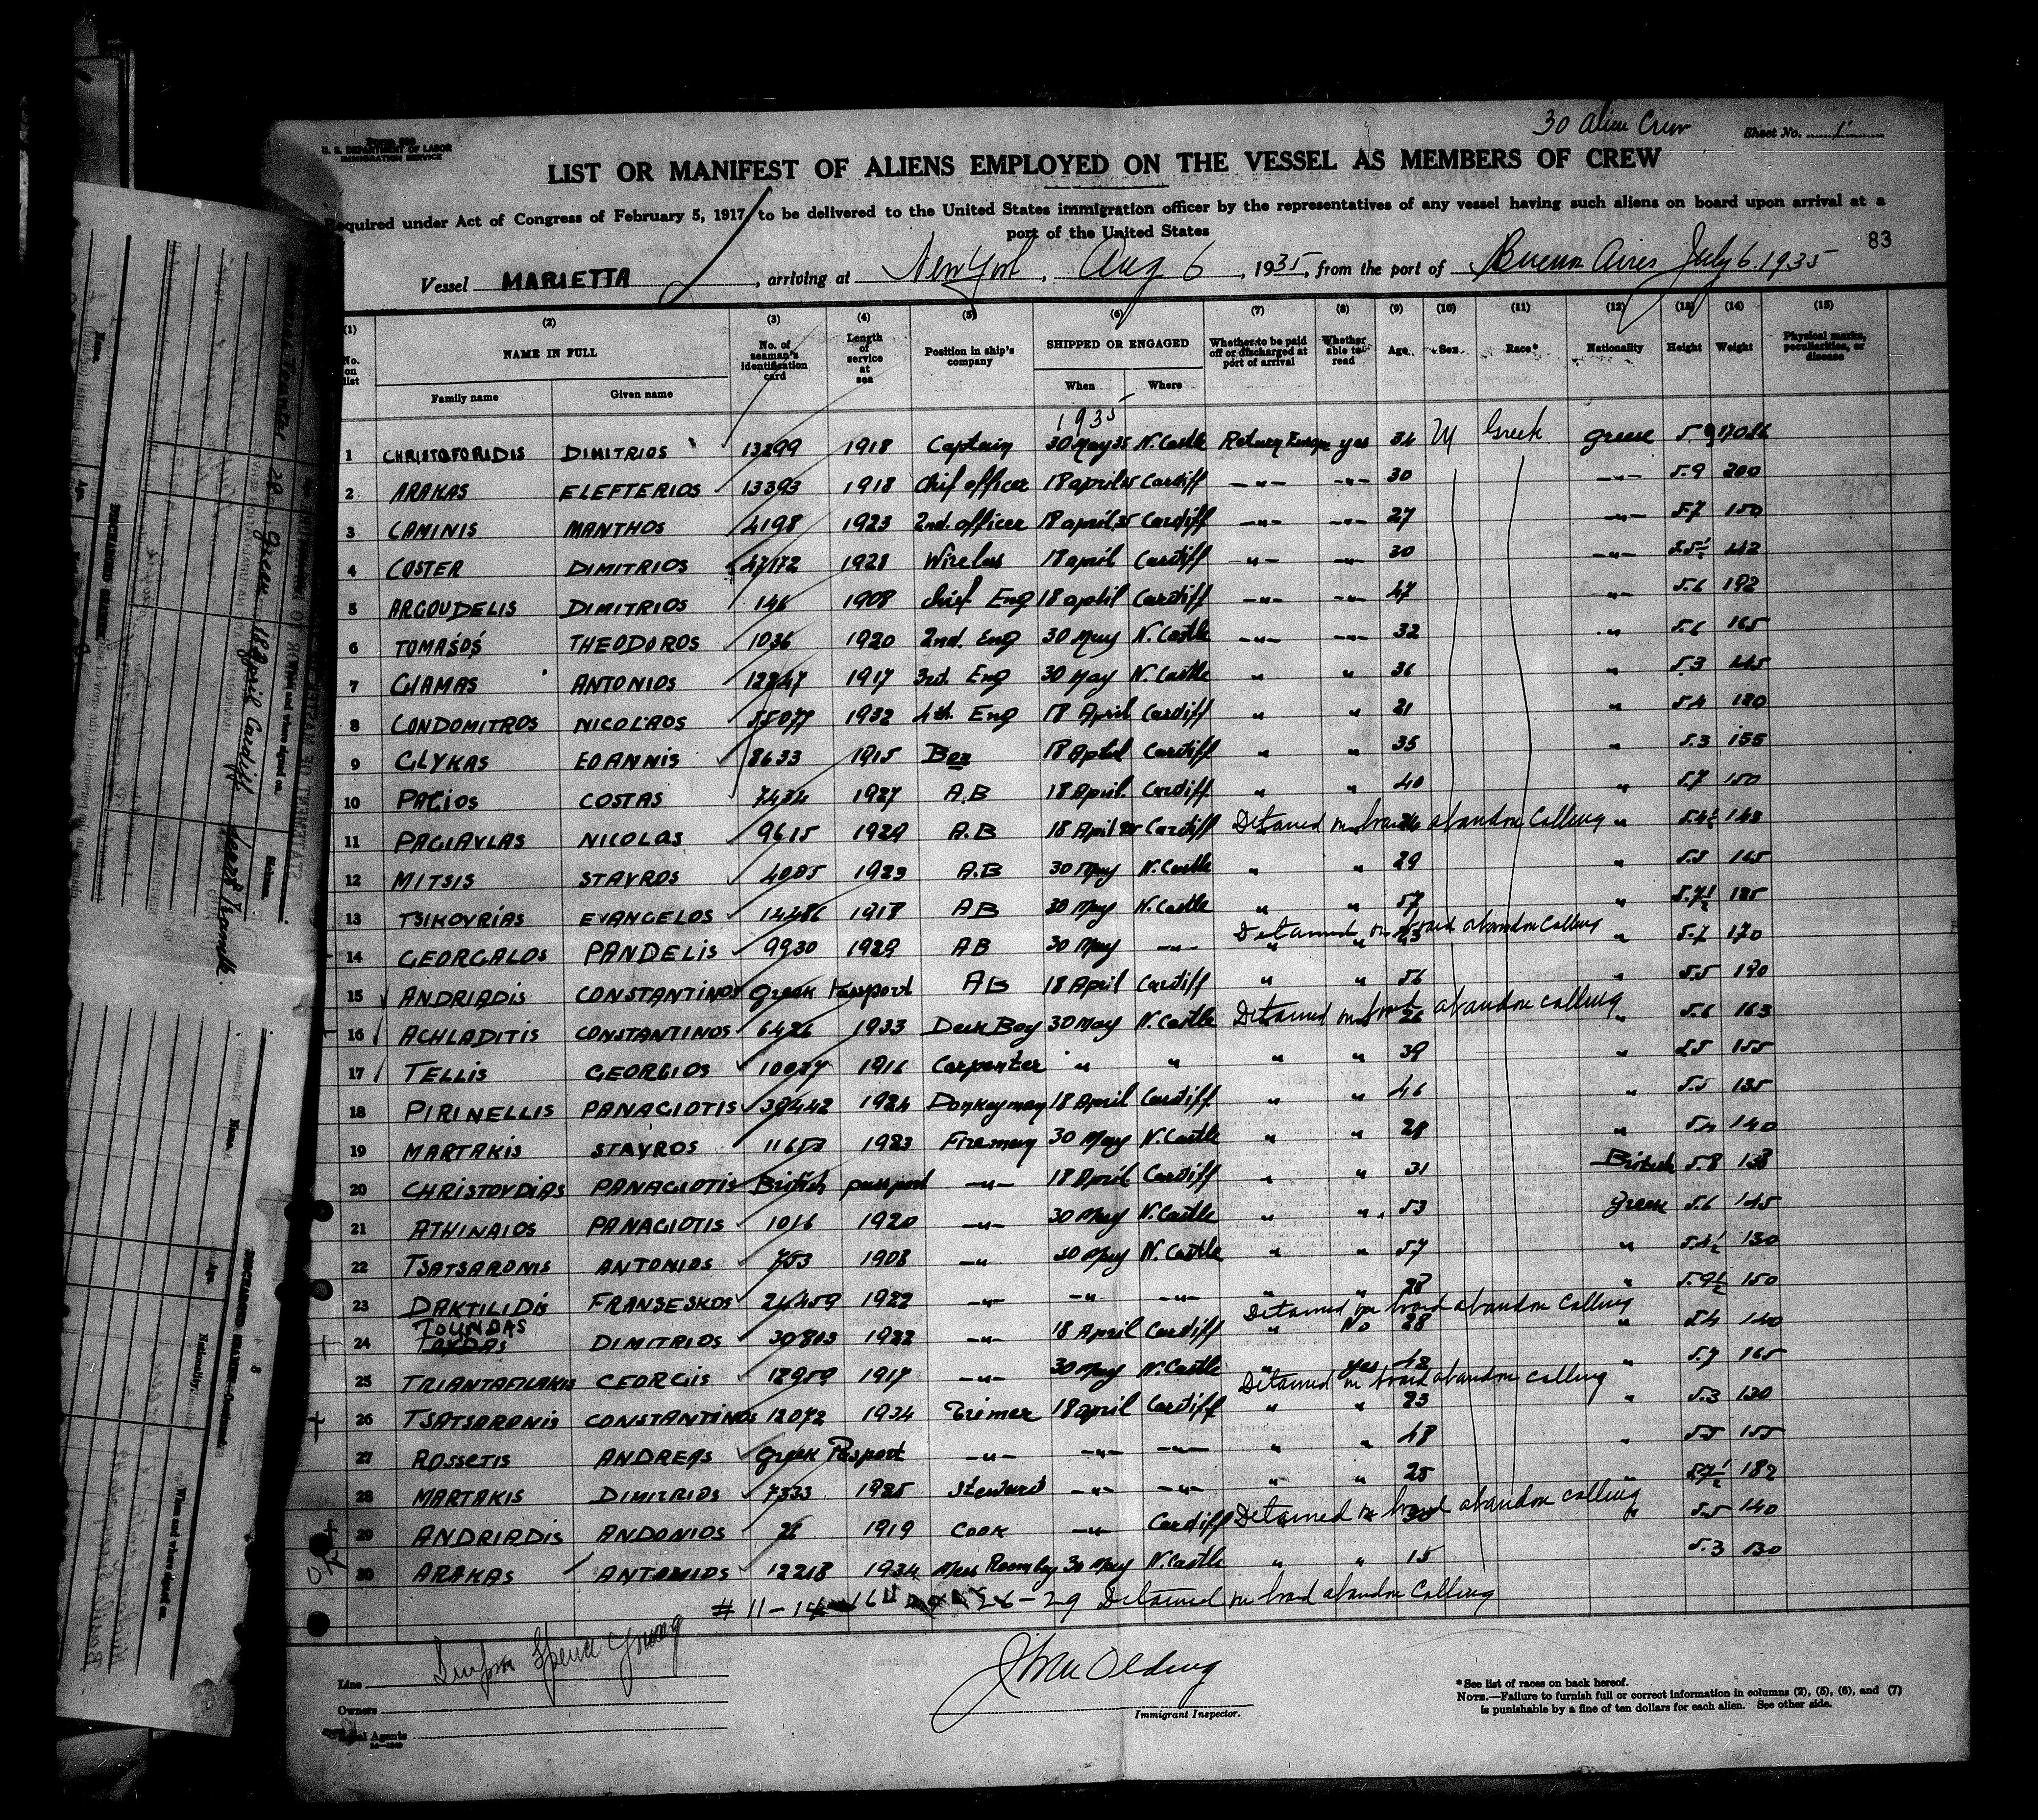 30 Alien Crew
Sheet No. 1
U. S. DEPARTMENT OF LABOR
IMMIGRATION SERVICE
LIST OR MANIFEST OF ALIENS EMPLOYED ON THE VESSEL AS MEMBERS OF CREW
Required under Act of Congress of February 5, 1917, to be delivered to the United States immigration officer by the representatives of any vessel having such aliens on board upon arrival at a
port of the United States
83
Vessel MARIETTA, arriving at New York, Aug 6, 1935, from the port of Buenos Aires July 6. 1935
(1) (2) (3) (4) (5) (6) (7) (8) (9) (10) (11) (12) (13) (14) (15)
No. on list NAME IN FULL Family name Given name No. of seaman's identification card Length of service at sea Position in ship's company SHIPPED OR ENGAGED When Where Whether to be paid off or discharged at port of arrival Whether able to read Age Sex Race* Nationality Height Weight Physical marks, peculiarities, or disease
1935
1 CHRISTOFORIDIS DIMITRIOS 13299 1918 Captain 30 May 35 N. Castle Return Europe yes 34 M Greek Greece 5.9
2 ARAKAS ELEFTERIOS 13393 1918 Chif officer 18 april 35 Cardiff -"- -"- 30 -"- 5.9 200
3 CAMINIS MANTHOS 4198 1923 2nd. officer 18 april 35 Cardiff -"- -"- 27 -"- 5.7 150
4 COSTER DIMITRIOS 47172 1928 Wireless 18 april Cardiff -"- -"- 30 -"-
5 ARGOUDELIS DIMITRIOS 146 1908 Chief Eng 18 april Cardiff -"- -"- 47 -"- 5.6 192
6 TOMASOS THEODOROS 1036 1920 2nd. Eng 30 May N. Castle -"- -"- 32 " 5.6 165
7 GIAMAS ANTONIOS 12247 1917 3rd. Eng 30 May N. Castle " " 36 " 5.3 145
8 CONDOMITROS NICOLAOS 55077 1932 4th. Eng 18 April Cardiff " " 21 " 5.4 120
9 GLYKAS EOANNIS 8633 1915 Bos 18 April Cardiff " " 35 " 5.3 155
10 PAGIOS COSTAS 7434 1927 A.B 18 April. Cardiff. " " 40 " 5.7 150
11 PAGIAVLAS NICOLAS 9615 1929 A.B 18 April 35 Cardiff Detained on board abandon calling " 5.4½ 143
12 MITSIS STAVROS 4005 1923 A.B 30 May N. Castle " " 29 " 5.5 165
13 TSIKOVRIAS EVANGELOS 14486 1918 AB 30 May N. Castle " " 57 " 5.7½ 185
14 GEORGALOS PANDELIS 9930 1929 AB 30 May -"- Detained on board abandon calling " 5.7 170
15 ANDRIADIS CONSTANTINOS Greek Passport AB 18 April Cardiff " " 56 " 5.5 190
16 ACHLADITIS CONSTANTINOS 6426 1933 Deck Boy 30 May N. Castle Detained on board abandon calling 26 " 5.6 163
17 TELLIS GEORGIOS 10027 1916 Carpenter " " " " 39 " 5.5 155
18 PIRINELLIS PANAGIOTIS 39442 1924 Donkeyman 18 April Cardiff " " 46 " 5.5 135
19 MARTAKIS STAVROS 11653 1923 Fireman 30 May N. Castle " " 28 " 5.4 140
20 CHRISTOVDIAS PANAGIOTIS British passport -"- 18 April Cardiff " " 31 British 5.8 138
21 ATHINAIOS PANAGIOTIS 1016 1920 -"- 30 May N. Castle " " 53 Greece 5.6 145
22 TSATSARONIS ANTONIOS 753 1908 -"- 30 May N. Castle " " 57 " 5.4½ 130
23 DAKTILIDIS FRANSESKOS 24459 1922 -"- -"- -"- " " 28 " 5.9½ 150
TOUNDAS
24 DIMITRIOS 30803 1922 -"- 18 April Cardiff Detained on board abandon calling No 28 " 5.4 140
25 TRIANTAFILAKIS GEORGIIS 12959 1917 -"- 30 May N. Castle " yes 42 " 5.7 165
26 TSATSARONIS CONSTANTINOS 12072 1934 Trimer 18 april Cardiff Detained on board abandon calling " " 23 " 5.3 130
27 ROSSETIS ANDREAS Greek Passport -"- -"- -"- " " 48 " 5.5 155
28 MARTAKIS DIMITRIOS 7333 1925 Steward -"- -"- " " 25 " 5.7½ 182
29 ANDRIADIS ANDONIOS 1919 Cook -"- Cardiff Detained on board abandon calling " 5.5 140
30 ARAKAS ANTONIOS 12218 1934 Mess Roomboy 30 May N. Castle " " 15 5.3 130
# 11 - 14 - 16 26 - 29 Detained on board abandon calling
Line Simpson Spence Young
Owners
Local Agents
Immigrant Inspector.
*See list of races on back hereof.
NOTE.—Failure to furnish full or correct information in columns (2), (5), (6), and (7)
is punishable by a fine of ten dollars for each alien. See other side.